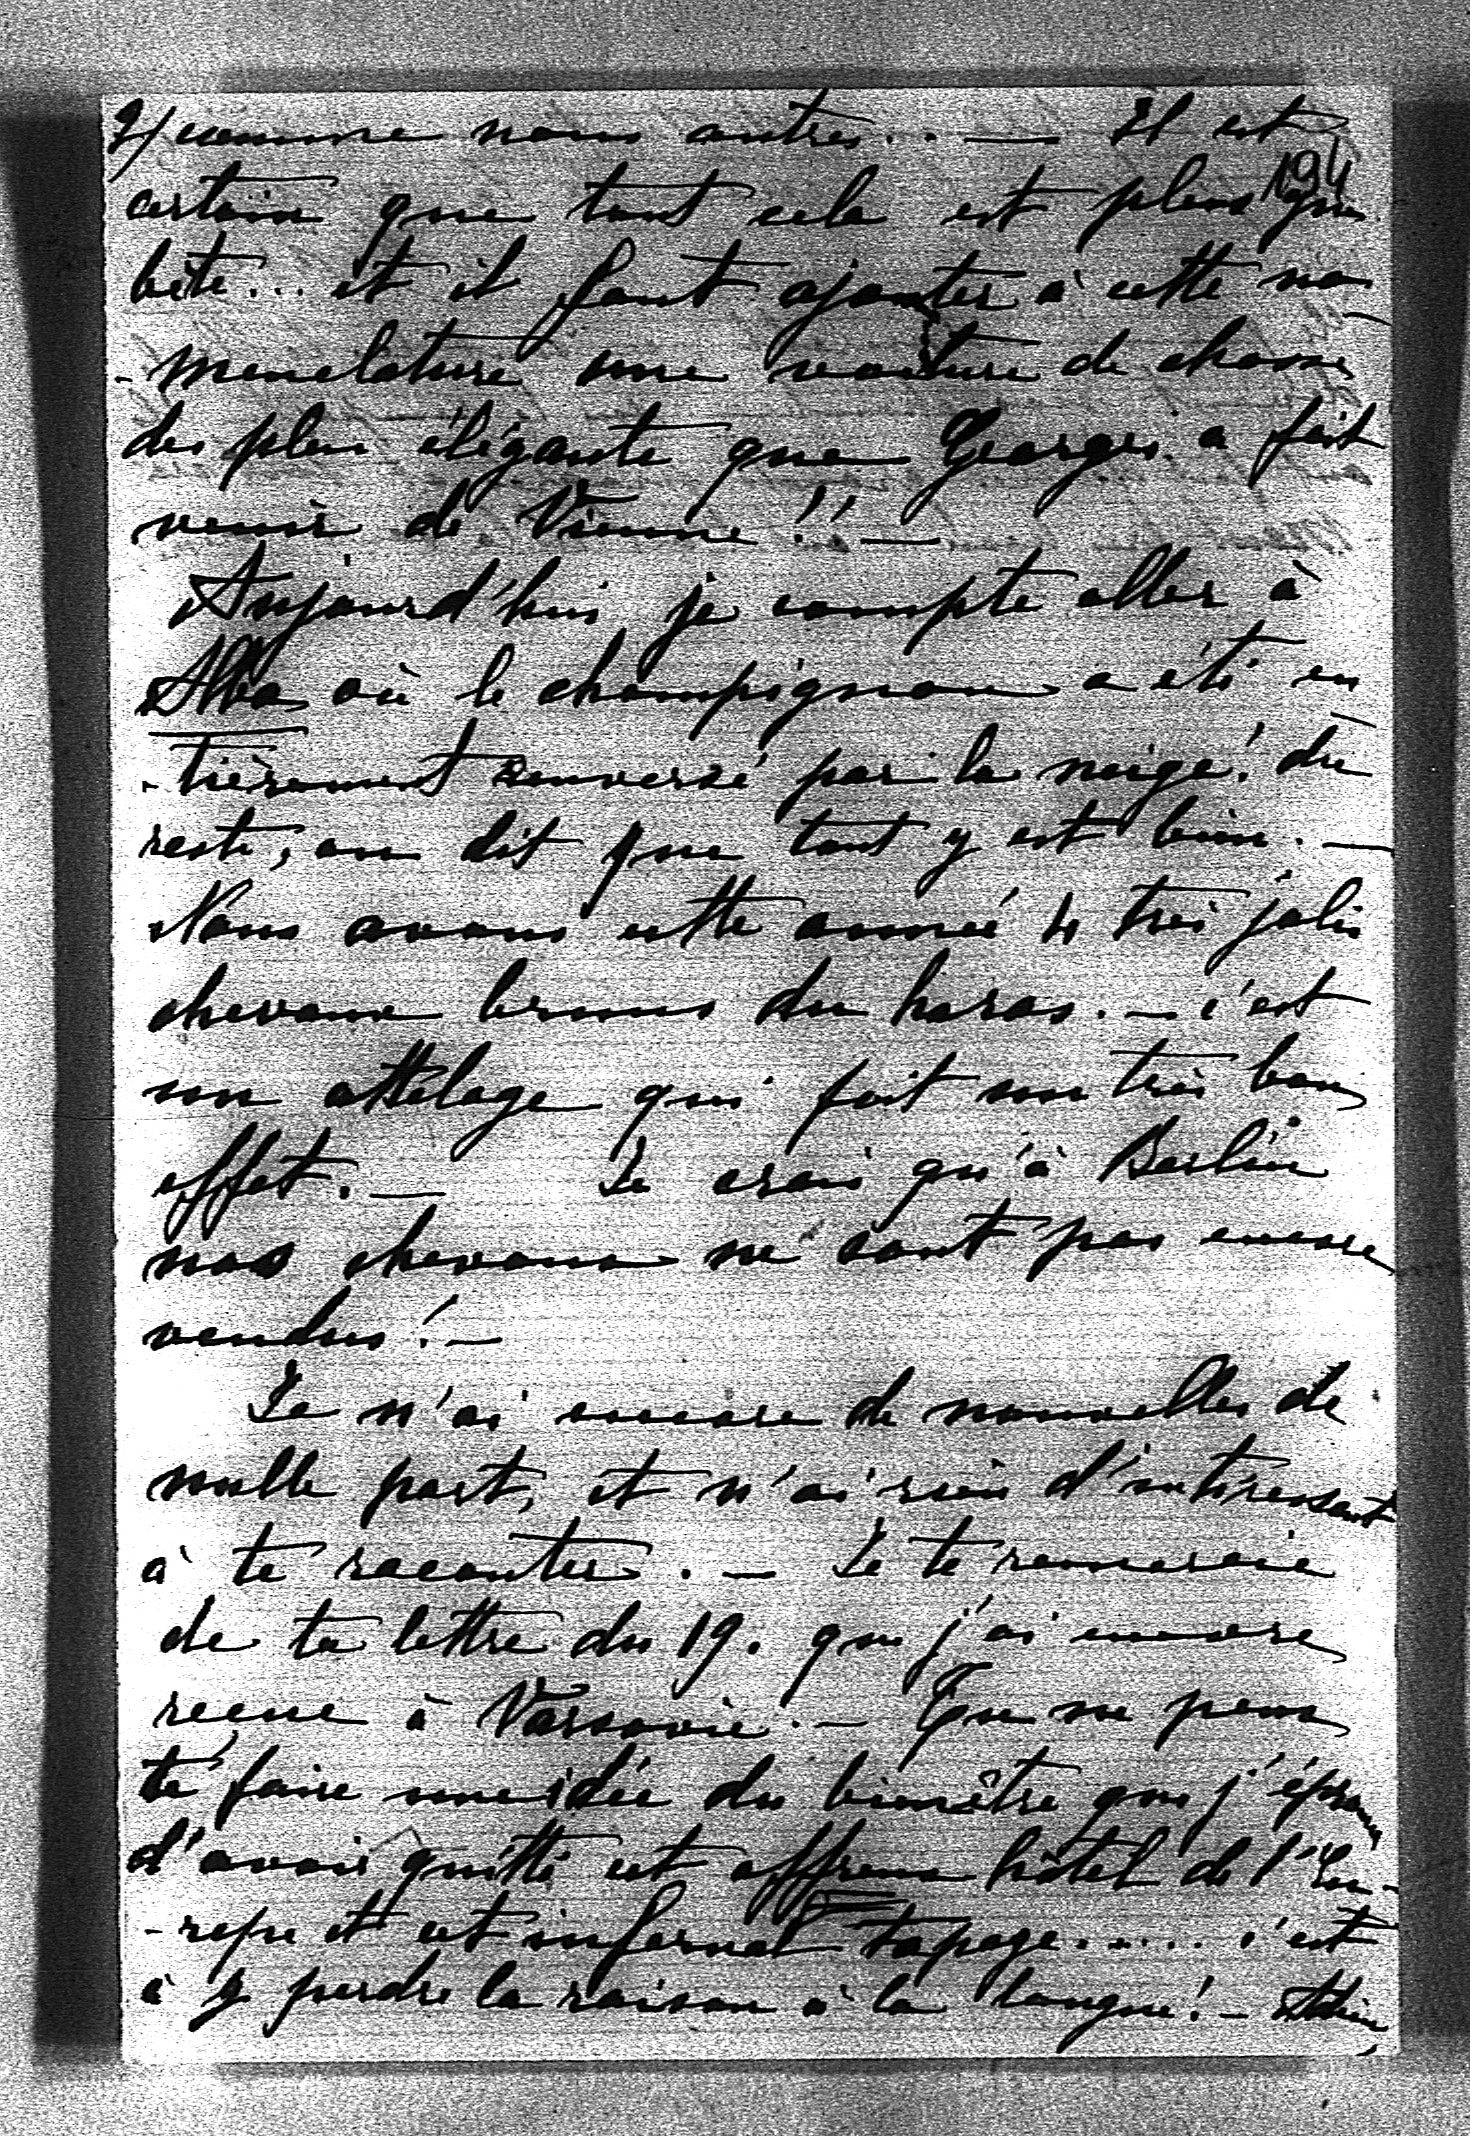 2/ comme nous autres.. — Il est
194
certain que tout cela est plus que
bête... et il faut ajouter à cette no-
-menclature une voiture de chasse
des plus élégante que Georges a fait
venir de Vienne!! —
Aujourd'hui je compte aller à
Alba où le champignon a été en
-tièrement renversé par la neige! du
reste, on dit que tout y est bien. —
Nous avons cette année 4 très jolis
chevaux bruns du haras. — c'est
un attelage qui fait un très bon
effet. — Je crois qu'à Berlin
nos chevaux ne sont pas encore
vendus! —
Je n'ai encore de nouvelles de
nulle part, et n'ai rien d'intéressant
à te raconter. — Je te remercie
de ta lettre du 19. que j'ai encore
reçue à Varsovie. — Tu ne peux
te faire une idée du bienêtre que j'éprouve
d'avoir quitté cet affreux hôtel de l'Eu-
-rope et cet infernal tapage..... c'est
à y perdre la raison à la longue! — Adieu,